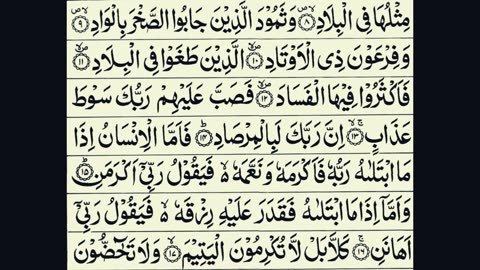 مِثْلُهَا فِی الْبِلَادِ ۝۸ وَثَمُوْدَ الَّذِیْنَ جَابُوا الصَّخْرَ بِالْوَادِ ۝۹
وَفِرْعَوْنَ ذِی الْاَوْتَادِ ۝۱۰ الَّذِیْنَ طَغَوْا فِی الْبِلَادِ ۝۱۱
فَاَكْثَرُوْا فِیْهَا الْفَسَادَ ۝۱۲ فَصَبَّ عَلَیْهِمْ رَبُّكَ سَوْطَ
عَذَابٍ ۝۱۳ اِنَّ رَبَّكَ لَبِالْمِرْصَادِ ۝۱۴ فَاَمَّا الْاِنْسَانُ اِذَا
مَا ابْتَلٰىهُ رَبُّهٗ فَاَكْرَمَهٗ وَنَعَّمَهٗ ەۙ فَیَقُوْلُ رَبِّیْۤ اَكْرَمَنِ ۝۱۵
وَاَمَّاۤ اِذَا مَا ابْتَلٰىهُ فَقَدَرَ عَلَیْهِ رِزْقَهٗ ەۙ فَیَقُوْلُ رَبِّیْۤ
اَهَانَنِ ۝۱۶ كَلَّا بَلْ لَّا تُكْرِمُوْنَ الْیَتِیْمَ ۝۱۷ وَلَا تَحٰٓضُّوْنَ